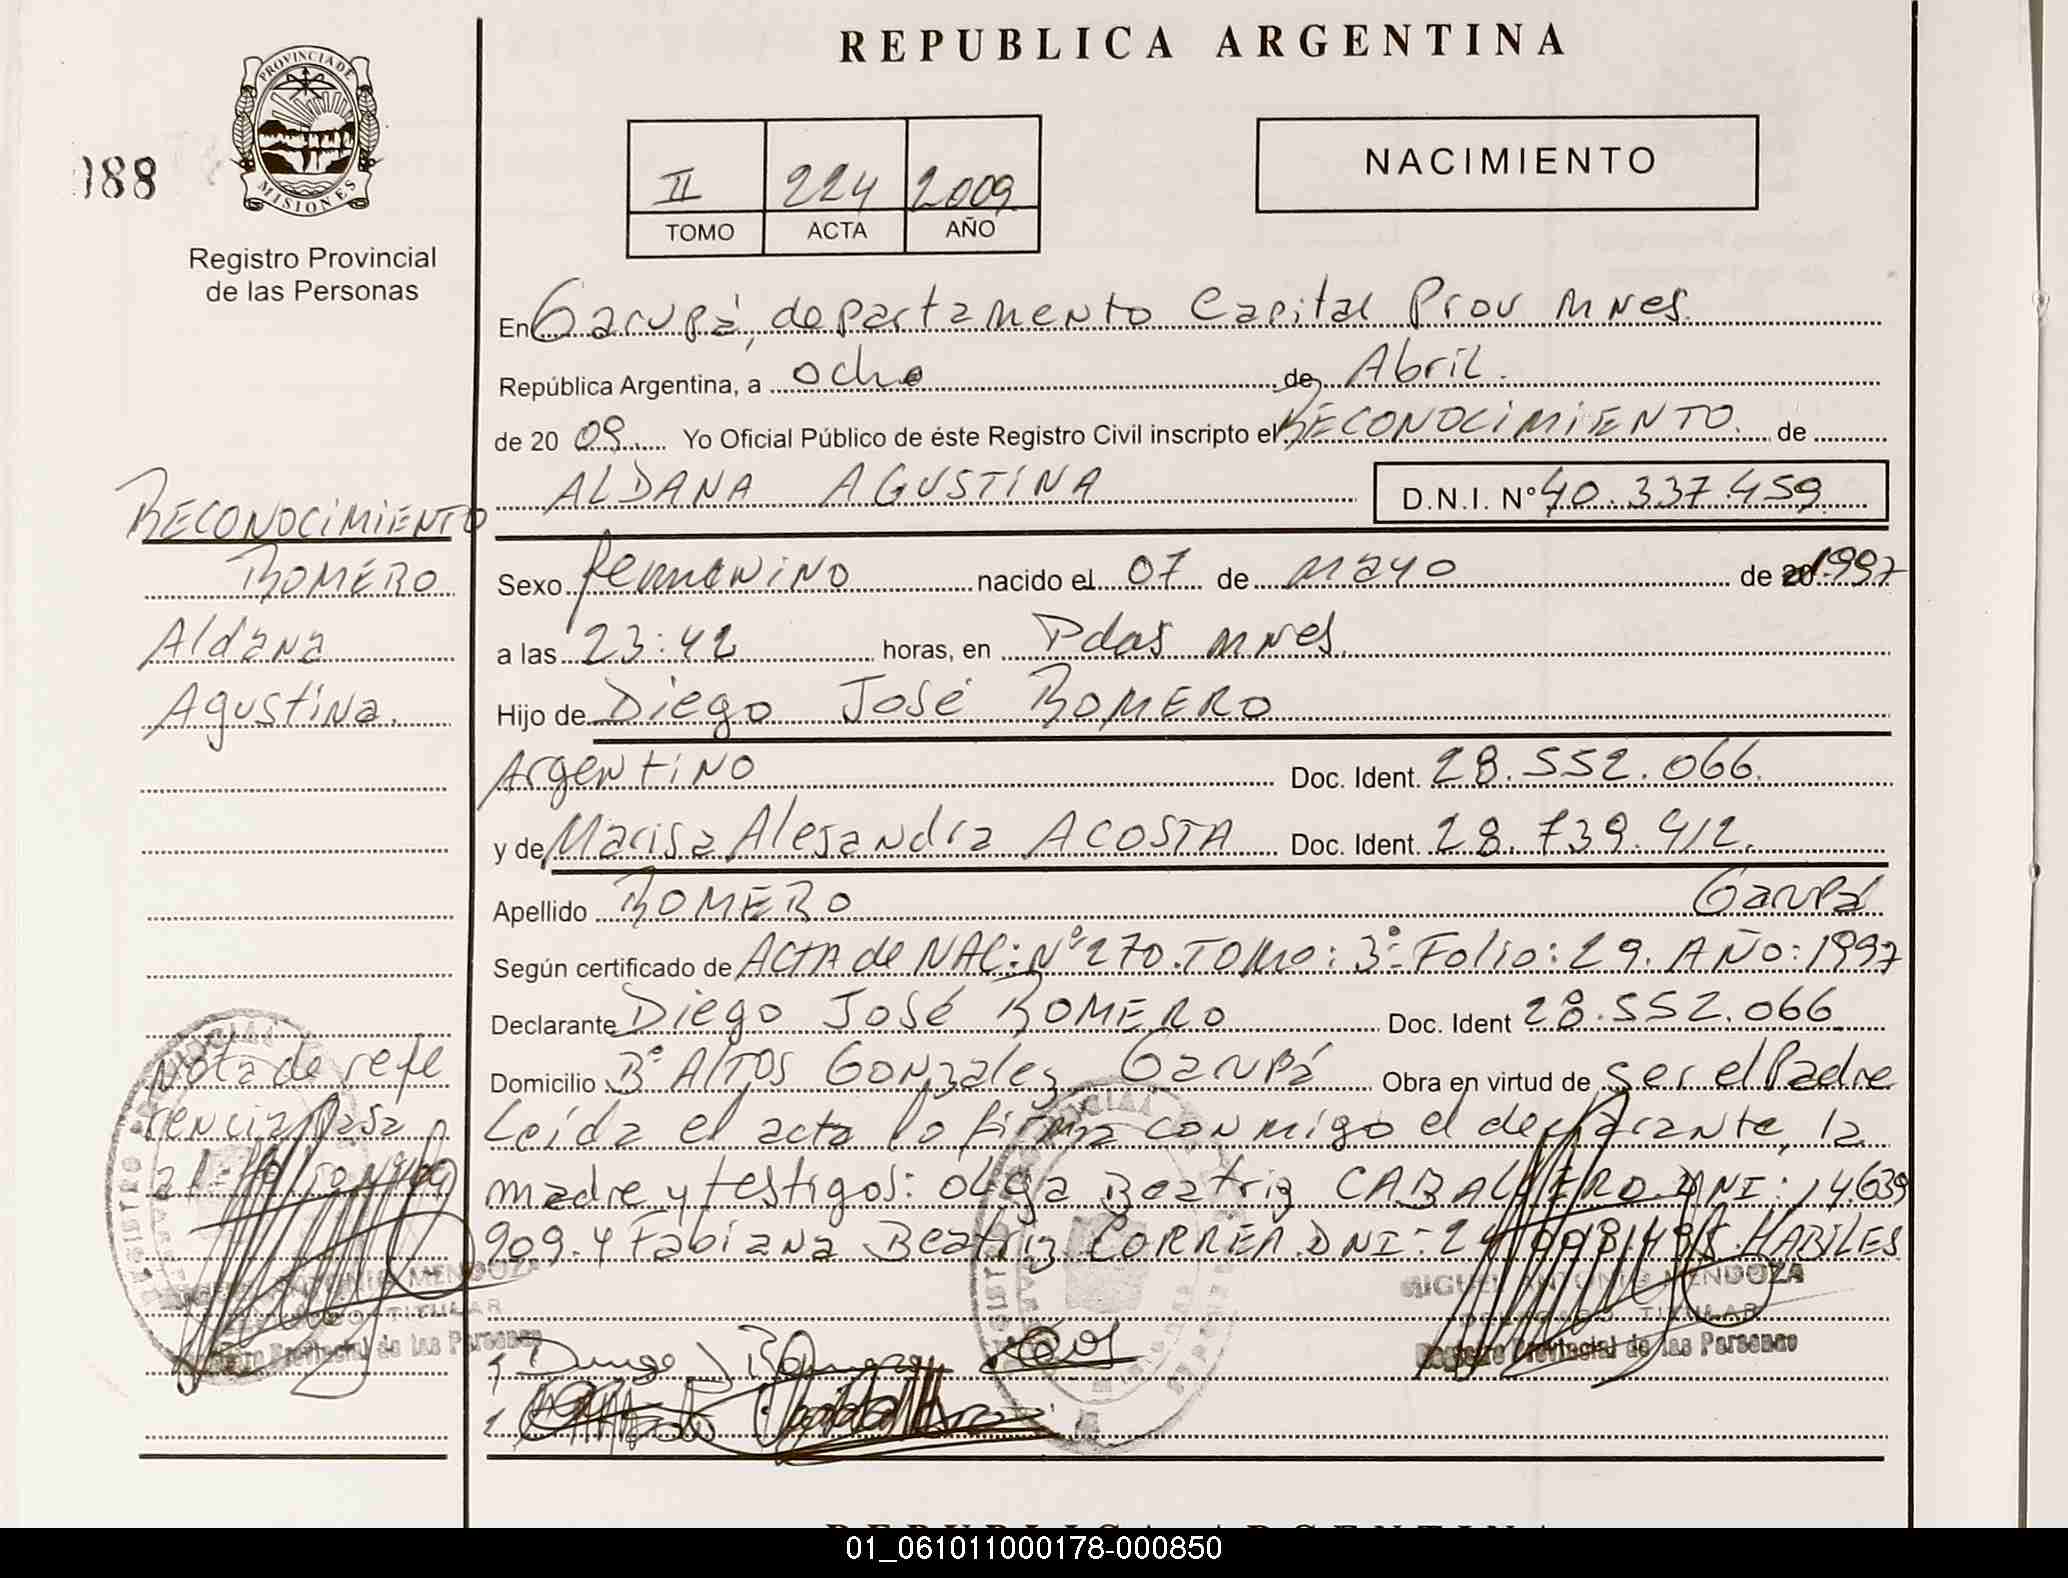 REPUBLICA ARGENTINA
PROVINCIA DE
MISIONES
188
Registro Provincial
de las Personas
II 224 2009
TOMO ACTA AÑO
NACIMIENTO
En Garupá, departamento Capital Prov Mnes.
República Argentina, a ocho de Abril.
de 20 09 Yo Oficial Público de éste Registro Civil inscripto el RECONOCIMIENTO. de
ALDANA AGUSTINA D.N.I. Nº 40.337.459
RECONOCIMIENTO
ROMERO
Aldana
Agustina.
Sexo femenino nacido el 07 de mayo de 20 1997
a las 23:42 horas, en Pdas mnes.
Hijo de Diego José ROMERO
Argentino Doc. Ident. 28.552.066.
y de Marisa Alejandra ACOSTA Doc. Ident. 28.739.412.
Apellido ROMERO Garupá
Según certificado de ACTA de NAC: Nº 270. TOMO: 3º- Folio: 29. AÑO: 1997
Declarante Diego José ROMERO Doc. Ident 28.552.066
Domicilio Bº Altos Gonzalez Garupá Obra en virtud de ser el Padre
Leída el acta lo firma conmigo el declarante, la
madre y testigos: Olga Beatriz CABALLERO. DNI: 14.639
909. y Fabiana Beatriz CORREA. DNI- HABILES
Nota de refe
rencia pasa
al folio
MIGUEL ANTONIO MENDOZA
DELEGADO TITULAR
Registro Provincial de las Personas
MIGUEL ANTONIO MENDOZA
DELEGADO TITULAR
Registro Provincial de las Personas
01_061011000178-000850